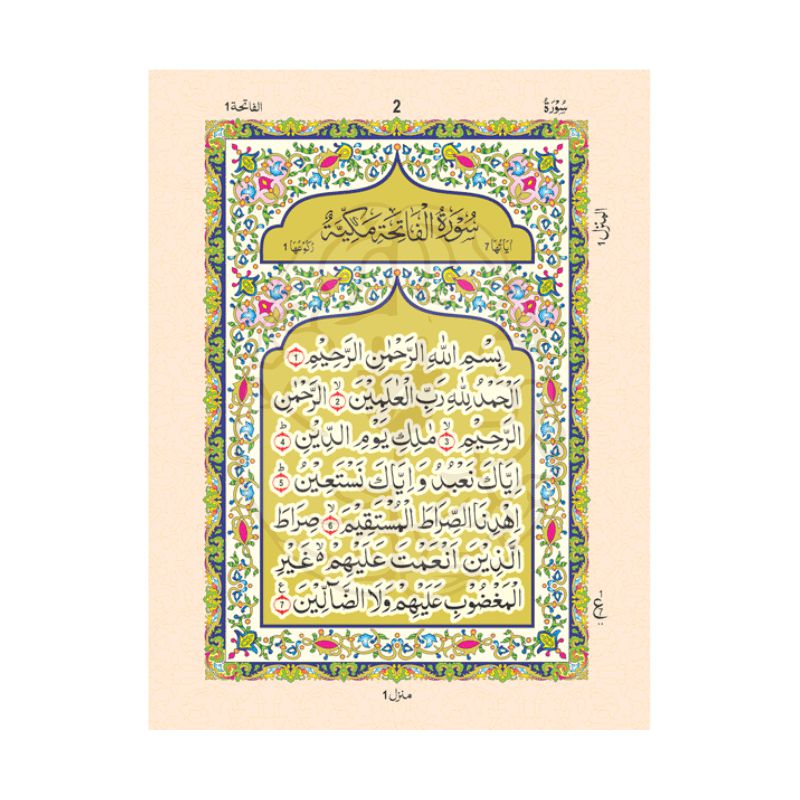 سُوْرَةُ 2 الفاتحة 1
سُوْرَةُ الْفَاتِحَةِ مَكِّيَّةٌ
اٰيَاتُهَا 7 رُكُوْعُهَا 1
المنزل 1
بِسْمِ اللّٰهِ الرَّحْمٰنِ الرَّحِيْمِ 1
اَلْحَمْدُ لِلّٰهِ رَبِّ الْعٰلَمِيْنَۙ 2 الرَّحْمٰنِ
الرَّحِيْمِۙ 3 مٰلِكِ يَوْمِ الدِّيْنِؕ 4
اِيَّاكَ نَعْبُدُ وَ اِيَّاكَ نَسْتَعِيْنُؕ 5
اِهْدِنَا الصِّرَاطَ الْمُسْتَقِيْمَۙ 6 صِرَاطَ
الَّذِيْنَ اَنْعَمْتَ عَلَيْهِمْ ۙ۬ غَيْرِ
الْمَغْضُوْبِ عَلَيْهِمْ وَلَا الضَّآلِّيْنَ 7 ع
منزل 1